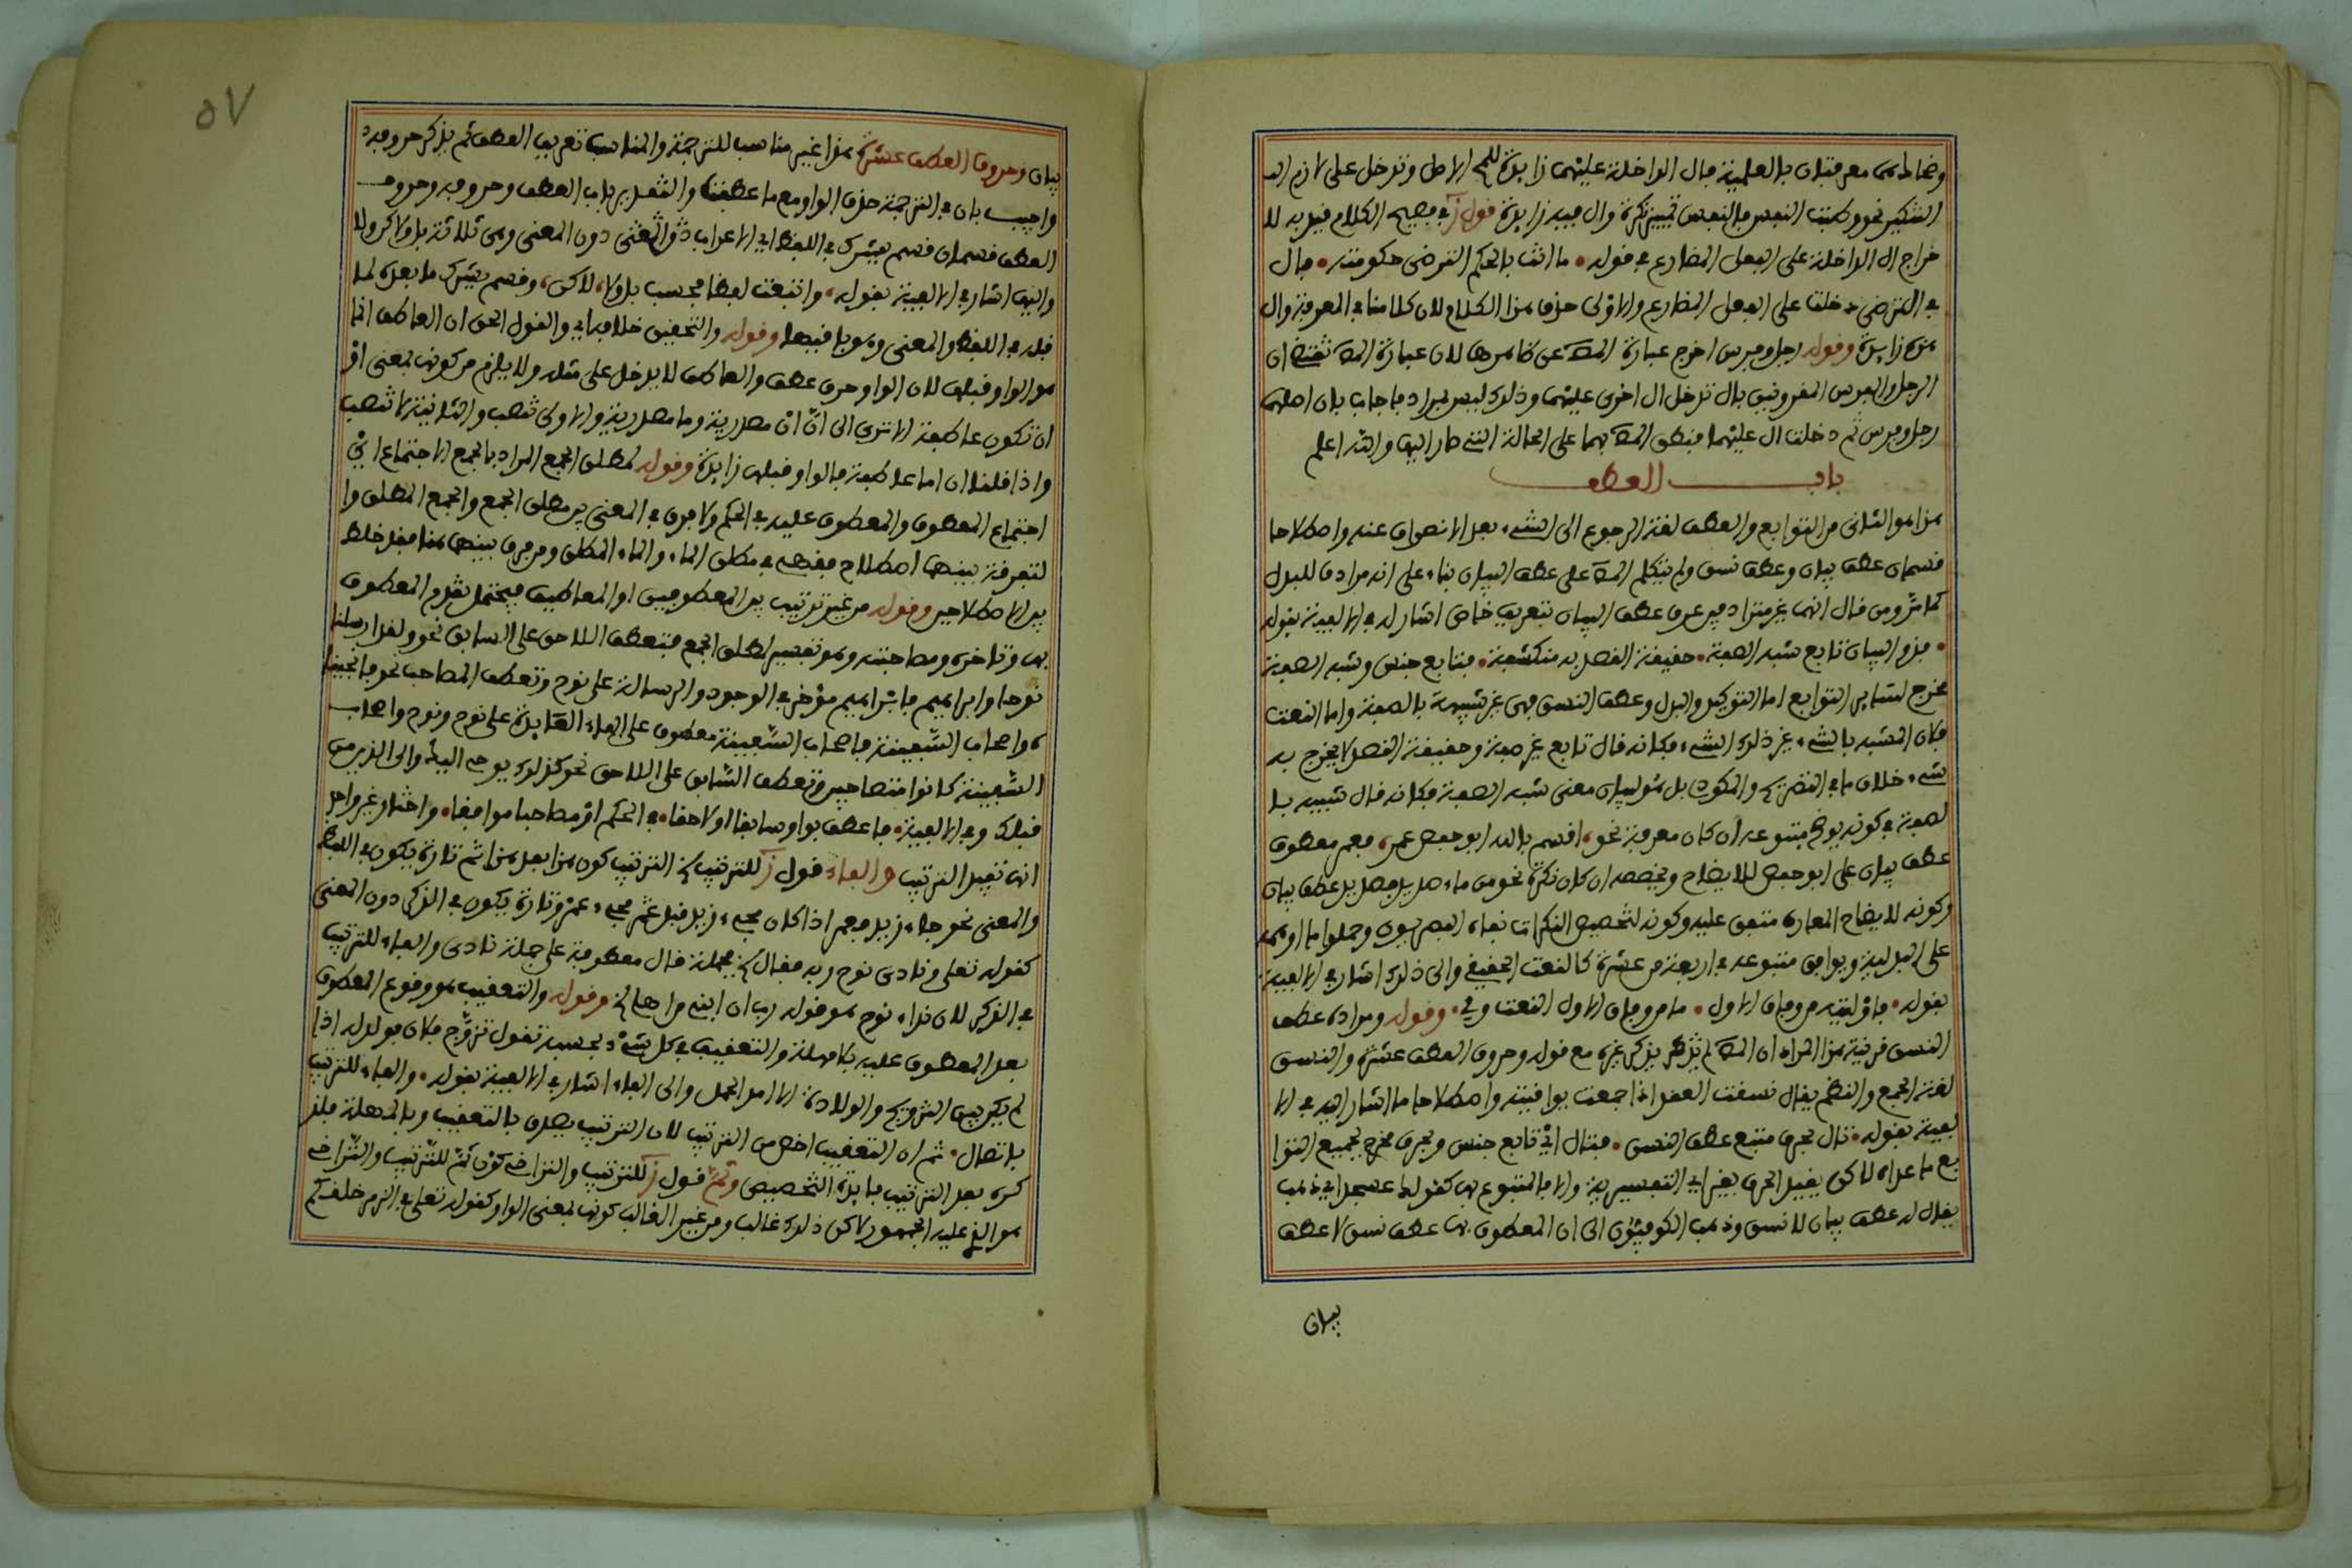 وضاداس معرفتان بالعلمية فال الداخلة عليهما زايدة للمح الاصل وتدخل على لازم
التنكير نحو وطبت النفس فالنفس تمييز نكرة وال فيه زايدة قول ز في فصيح الكلام فيد به لا
خراج ال الداخلة على الفعل المضارع في قوله • ما انت بالحكم الترضى حكومته • فال
في الترضى دخلت على الفعل المضارع والاولى حذف هذا الكلام لان كلامنا في المعرفة وال
هذه زايدة وقوله رجل وفرس اخرج عبارة المص عن ظاهرها لان عبارة المص تقتضى ان
الرجل والفرس المقرونين بال تدخل ال اخرى عليهما وذلك ليس بمراد فاجاب بان اصلهما
رجل وفرس ثم دخلت ال عليهما فنطق المص بهما على الحالة التي صار اليها والله اعلم
باب العطف
هذا هو الثاني من التوابع والعطف لغة الرجوع الى الشيء بعد الانصراف عنه واصطلاحا
قسمان عطف بيان وعطف نسق ولم يتكلم المص على عطف البيان بناء على انه مرادف للبدل
كما مر ومن قال انهما غير مترادفين عرف عطف البيان بتعريف خاص اشار له في الالفية بقوله
• فذو البيان تابع شبه الصفة • حقيقة القصد به منكشفة • فتابع جنس وشبه الصفة
مخرج لساير التوابع اما التوكيد والبدل وعطف النسق فهي غير شبيهة بالصفة واما النعت
فلان المشبه بالشيء غير ذلك الشيء فكانه قال تابع غير صفة وحقيقة القصد لا يخرج به
شيء خلاف ما في التصريح والمكودي بل هو لبيان معنى شبه الصفة فكانه قال شبيه با
لصفة في كونه يوضح متبوعه ان كان معرفة نحو، اقسم بالله ابو حفص عمر، فعمر معطوف
عطف بيان على ابو حفص للايضاح ويخصصه ان كان نكرة نحو من ماء صديد فصديد عطف بيان
وكونه لايضاح المعارف متفق عليه وكونه لتخصيص النكرات نفاه البصريون وحملوا ما اوهمه
على البدلية ويوافق متبوعه في اربعة من عشرة كالنعت الحقيقي والى ذلك اشار في الالفية
بقوله • فاولينه من وفاق الاول • ما من وفاق الاول النعت ولي • وقوله ومراده عطف
النسق قرينة هذا المراد ان المص لم يذكر غيره مع قوله وحروف العطف عشرة والنسق
لغة الجمع والنظم يقال نسقت العقد اذا جمعت يواقيته واصطلاحا ما اشار اليه في الا
لفية بقوله • تال بحرف متبع عطف النسق • فتال اي تابع جنس وبحرف مخرج لجميع التوا
بع ما عداه لاكن يقيد الحرف بغير اي التفسيرية والا فالمتبوع بها كقولك عسجد اي ذهب
يقال له عطف بيان لا نسق وذهب الكوفيون الى ان المعطوف بها عطف نسق لا عطف
بيان
٥٧
بيان وحروف العطف عشرة هذا غير مناسب للترجمة والمناسب تعريف العطف ثم يذكر حروفه
واجيب بان في الترجمة حذف الواو مع ما عطفت والتقدير باب العطف وحروفه وحروف
العطف قسمان قسم يشرك في اللفظ اي الاعراب دون المعنى وهي ثلاثة بل ولا ولاكن
واليها اشار في الالفية بقوله، واتبعت لفظا فحسب بل ولا، لاكن، وقسم يشرك ما بعده لما
قبله في اللفظ والمعنى وهو باقيها وقوله والتحقيق خلافه اي والقول الحق ان العاطف انما
هو الواو قبلها لان الواو حرف عطف والعاطف لا يدخل على مثله ولا يلزم من كونها بمعنى او
ان تكون عاطفة الا ترى الى ان ان مصدرية وما مصدرية والاولى تنصب والثانية لا تنصب
واذا قلنا ان اما عاطفة فالواو قبلها زايدة وقوله لمطلق الجمع المراد بالجمع الاجتماع اي
اجتماع المعطوف والمعطوف عليه في الحكم ولا فرق في المعنى بين مطلق الجمع والجمع المطلق وا
لتفرقة بينهما اصطلاح بعضهم في مطلق الماء والماء المطلق ومن فرق بينهما هنا فقد خلط
بين الاصطلاحين وقوله من غير ترتيب بين المعطوفين او المعاطيف فيحتمل تقدم المعطوف
بها وتاخره ومصاحبته وهو تفسير لمطلق الجمع فتعطف اللاحق على السابق نحو ولقد ارسلنا
نوحا وابراهيم فابراهيم مؤخر في الوجود والرسالة على نوح وتعطف المصاحب نحو فانجينا
ه واصحاب السفينة فاصحاب السفينة معطوف على الهاء العايدة على نوح ونوح واصحاب
السفينة كانوا متصاحبين وتعطف السابق على اللاحق نحو كذلك يوحي اليك والى الذين من
قبلك وفي الالفية • فاعطف بواو سابقا او لاحقا • في الحكم او مصاحبا موافقا • واختار غير واحد
انها تفيد الترتيب والفاء قول ز للترتيب الخ الترتيب كون هذا بعد هذا ثم تارة يكون في اللفظ
والمعنى نحو جاء زيد فعمر اذا كان مجيء زيد قبل عمر مجيء عمر وتارة يكون في الذكر دون المعنى
كقوله تعلى ونادى نوح ربه فقال الخ فجملة فقال معطوفة على جملة نادى والفاء للترتيب
في الذكر لان نداء نوح هو قوله رب ان ابني من اهلي الخ وقوله والتعقيب هو وقوع المعطوف
بعد المعطوف عليه بلا مهلة والتعقيب في كل شيء بحسبه تقول تزوج فلان فولد له اذا
لم يكن بين التزويج والولادة الا امد الحمل والى الفاء اشار في الالفية بقوله • والفاء للترتيب
باتصال • ثم ان التعقيب اخص من الترتيب لان الترتيب يصدق بالتعقيب وبالمهلة فذ
كره بعد الترتيب فايدة التخصيص وثم قول ز للترتيب والتراخي كون ثم للترتيب والتراخي
هو الذي عليه الجمهور لاكن ذلك غالب ومن غير الغالب كونها بمعنى الواو كقوله تعلى في الزمر خلقكم